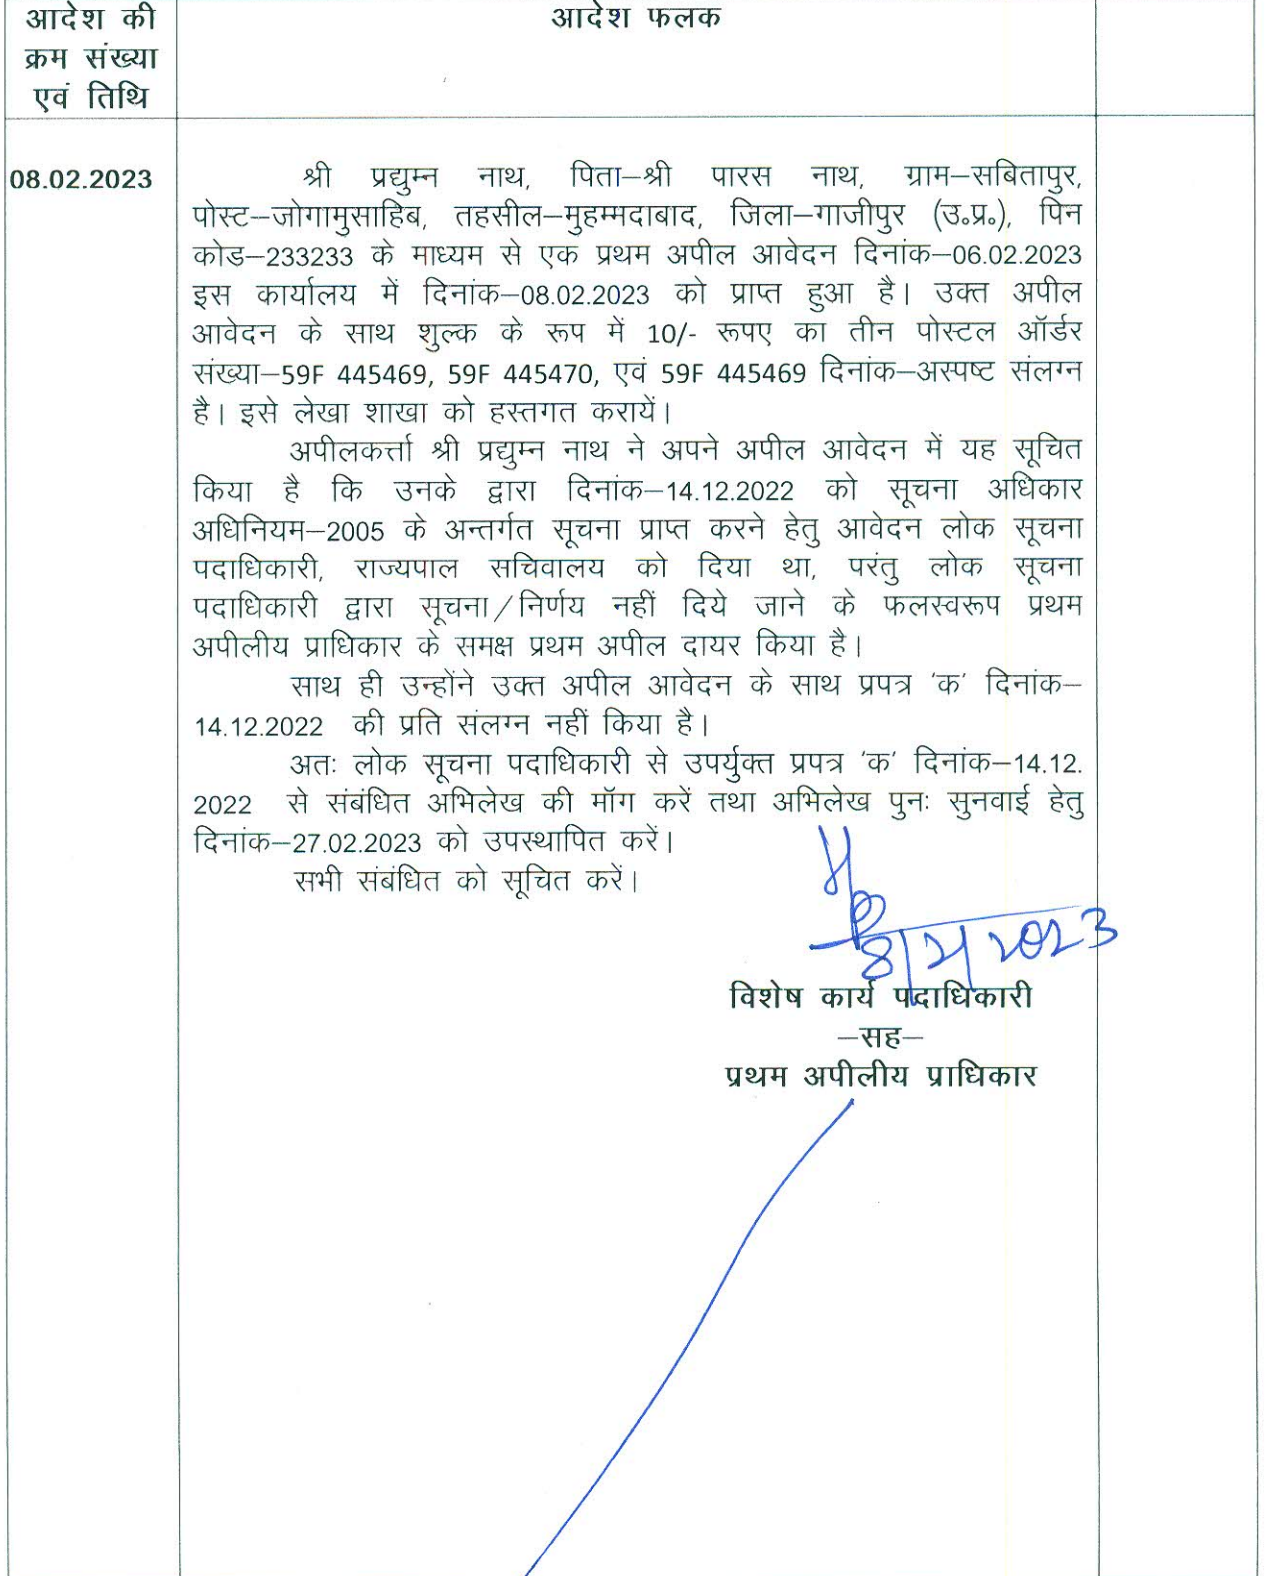 आदेश की
क्रम संख्या
एवं तिथि
आदेश फलक
08.02.2023
श्री प्रद्युम्न नाथ, पिता–श्री पारस नाथ, ग्राम–सबितापुर,
पोस्ट–जोगामुसाहिब, तहसील–मुहम्मदाबाद, जिला–गाजीपुर (उ०प्र०), पिन
कोड–233233 के माध्यम से एक प्रथम अपील आवेदन दिनांक–06.02.2023
इस कार्यालय में दिनांक–08.02.2023 को प्राप्त हुआ है। उक्त अपील
आवेदन के साथ शुल्क के रूप में 10/- रूपए का तीन पोस्टल ऑर्डर
संख्या–59F 445469, 59F 445470, एवं 59F 445469 दिनांक–अस्पष्ट संलग्न
है। इसे लेखा शाखा को हस्तगत करायें।
अपीलकर्त्ता श्री प्रद्युम्न नाथ ने अपने अपील आवेदन में यह सूचित
किया है कि उनके द्वारा दिनांक–14.12.2022 को सूचना अधिकार
अधिनियम–2005 के अन्तर्गत सूचना प्राप्त करने हेतु आवेदन लोक सूचना
पदाधिकारी, राज्यपाल सचिवालय को दिया था, परंतु लोक सूचना
पदाधिकारी द्वारा सूचना/निर्णय नहीं दिये जाने के फलस्वरूप प्रथम
अपीलीय प्राधिकार के समक्ष प्रथम अपील दायर किया है।
साथ ही उन्होंने उक्त अपील आवेदन के साथ प्रपत्र 'क' दिनांक–
14.12.2022 की प्रति संलग्न नहीं किया है।
अतः लोक सूचना पदाधिकारी से उपर्युक्त प्रपत्र 'क' दिनांक–14.12.
2022 से संबंधित अभिलेख की मॉग करें तथा अभिलेख पुनः सुनवाई हेतु
दिनांक–27.02.2023 को उपस्थापित करें।
सभी संबंधित को सूचित करें।
8/2/2023
विशेष कार्य पदाधिकारी
–सह–
प्रथम अपीलीय प्राधिकार